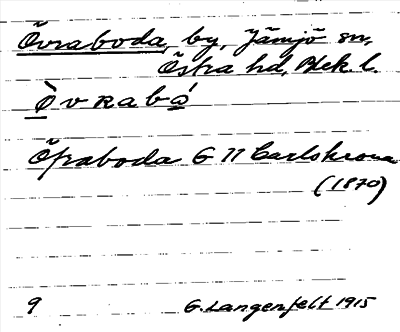 Övraboda, by, Jämjö sn,
Östra hd, Blek. l.
Ò̲ v R a b ó̲
Öfraboda G 77 Carlskrona
(1870)
9 G. Langenfelt 1915